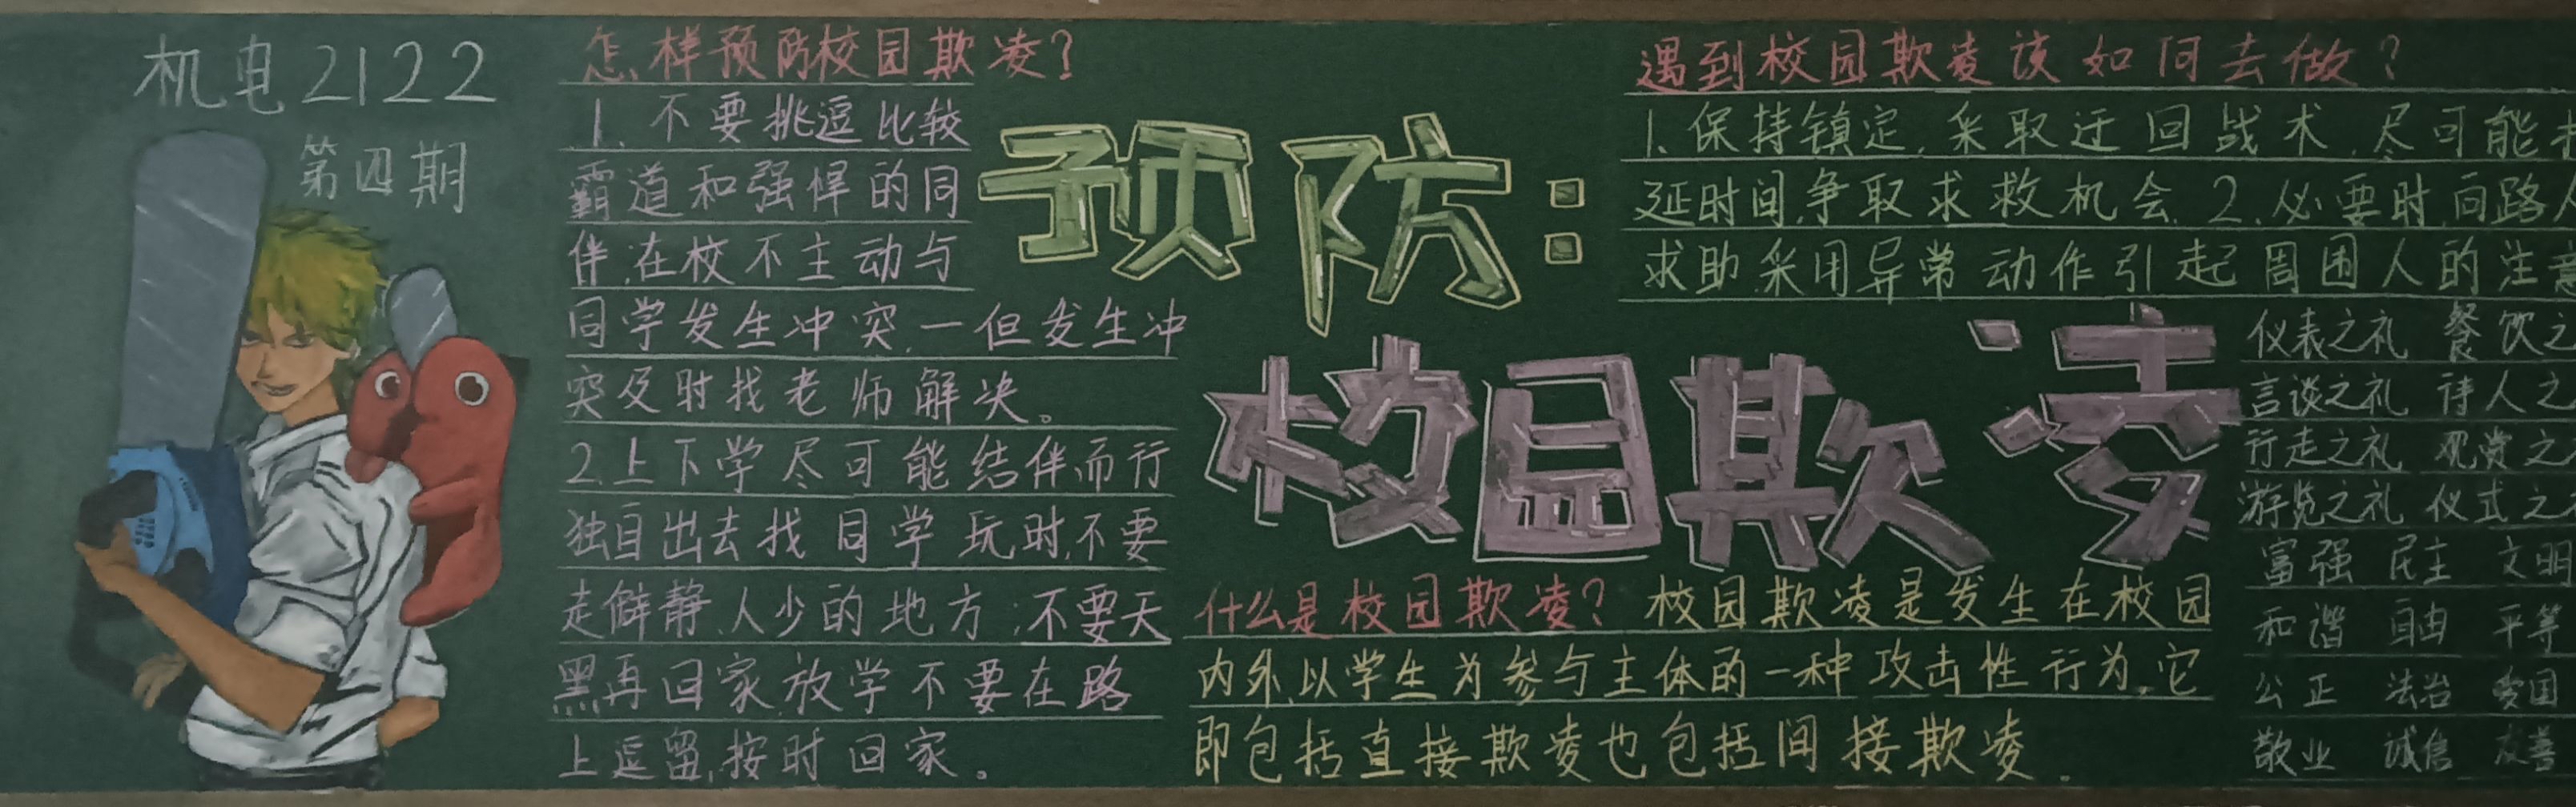 机电2122
第四期
怎样预防校园欺凌？
1、不要挑逗比较
霸道和强悍的同
伴,在校不主动与
同学发生冲突,一但发生冲
突及时找老师解决。
2.上下学尽可能结伴而行
独自出去找同学玩时,不要
走僻静、人少的地方;不要天
黑再回家,放学不要在路
上逗留,按时回家。
预防:
校园欺凌
什么是校园欺凌？校园欺凌是发生在校园
内外,以学生为参与主体的一种攻击性行为,它
即包括直接欺凌也包括间接欺凌.
遇到校园欺凌该如何去做？
1、保持镇定,采取迂回战术,尽可能
延时间,争取求救机会.2、必要时,向路人
求助,采用异常动作引起周围人的注意
仪表之礼 餐饮之
言谈之礼 待人之
行走之礼 观赏之
游览之礼 仪式之
富强 民主 文明
和谐 自由 平等
公正 法治 爱国
敬业 诚信 友善